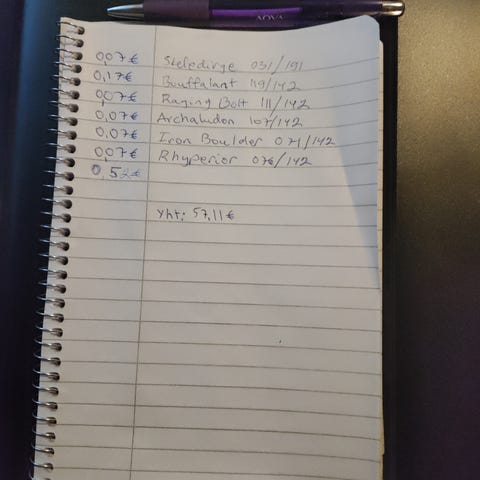 0,07€ Skeledirge 031/191
0,17€ Bouffalant 119/142
0,07€ Raging Bolt 111/142
0,07€ Archaludon 107/142
0,07€ Iron Boulder 071/142
0,07€ Rhyperior 076/142
0,52€
yht: 57,11€